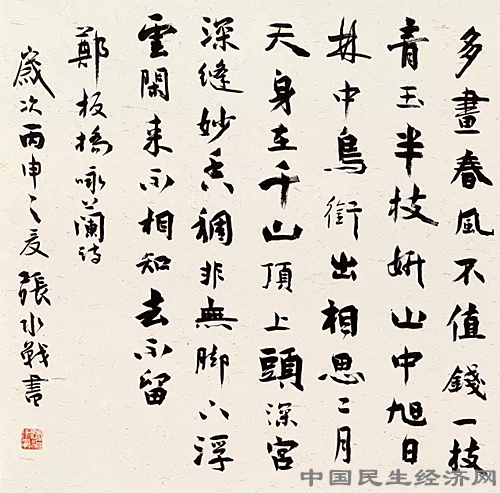 多畫春風不值錢一枝
青玉半枝妍山中旭日
林中鳥銜出相思二月
天身在千山頂上頭深宮
深縫妙香稠非無脚下浮
雲閑来不相知去不留
鄭板橋咏蘭詩
歲次丙申之夏張水戰書
中国民生经济网